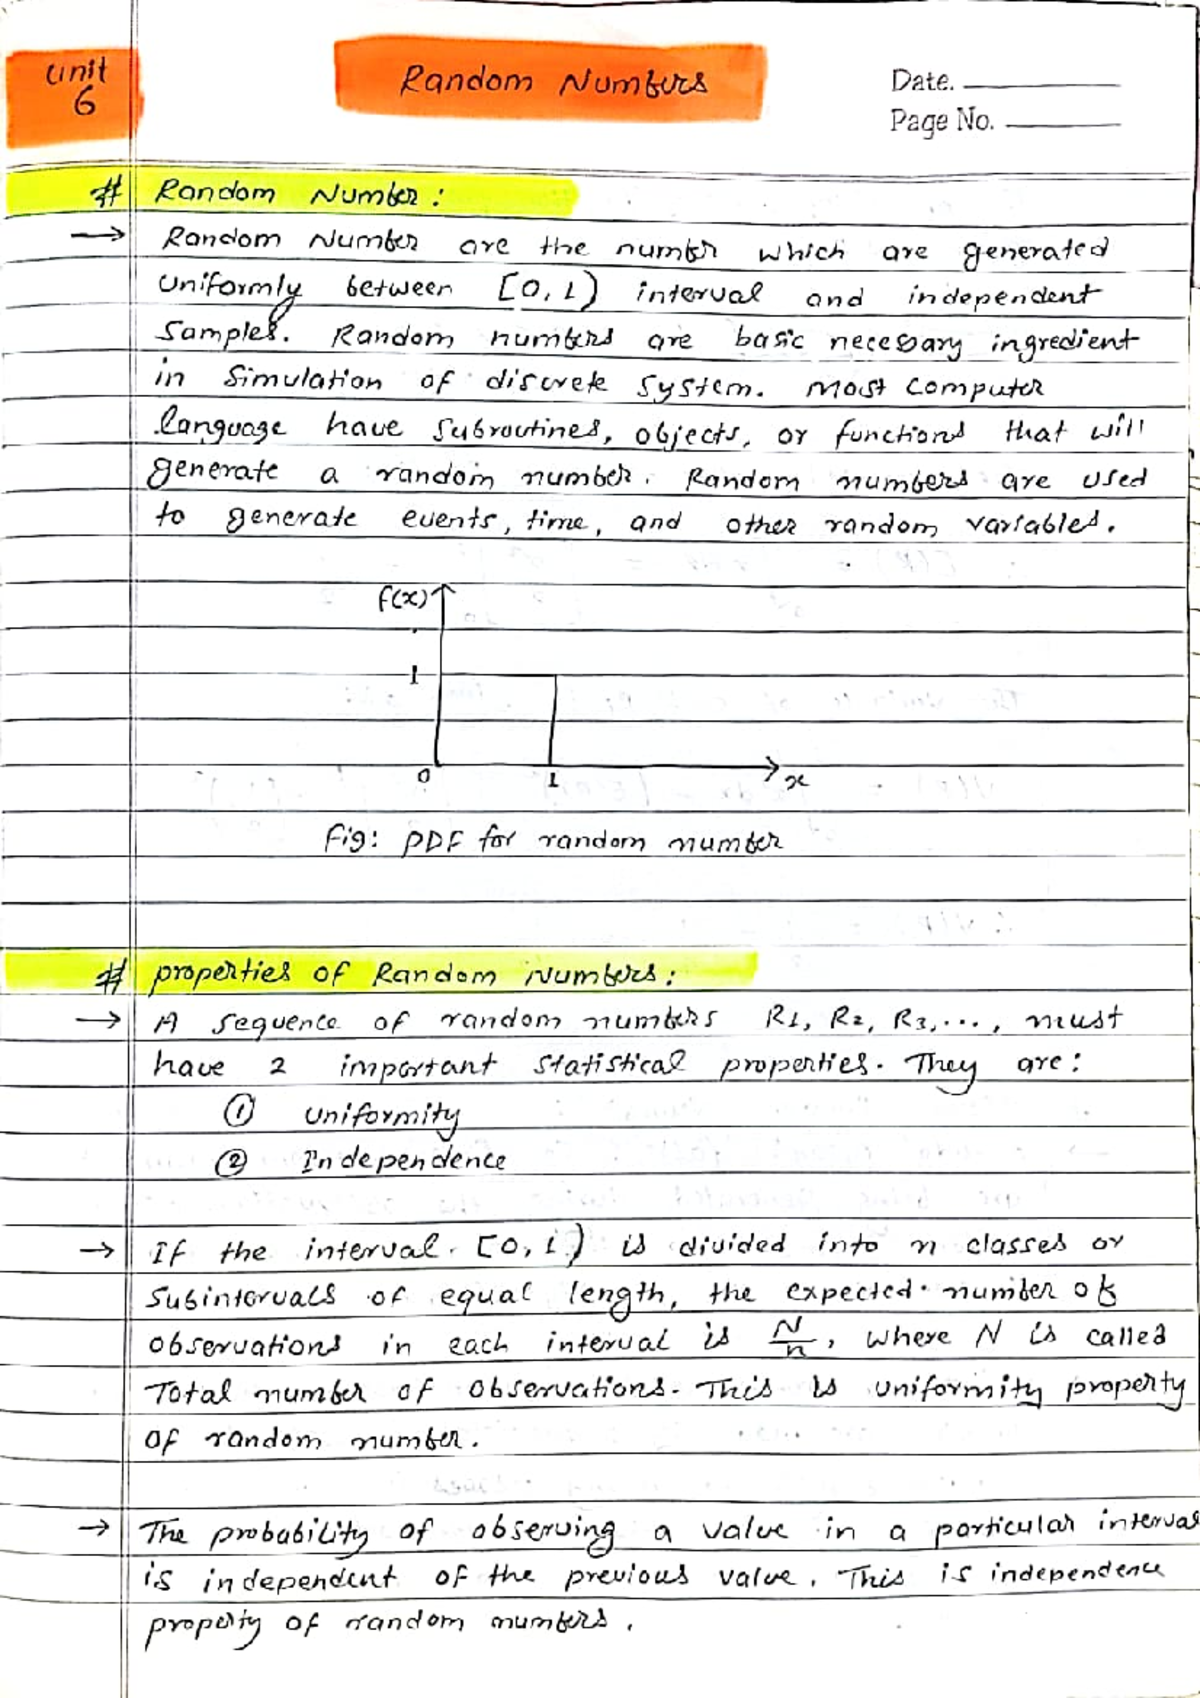 Unit
6
Random Numbers
Date.
Page No.
# Random Number:
→ Random Number are the number which are generated
uniformly between [0,1) interval and independent
samples. Random numbers are basic necessary ingredient
in simulation of discrete system. Most computer
language have subroutines, objects, or functions that will
generate a random number. Random numbers are used
to generate events, time, and other random variables.
f(x)
1
0 1 x
Fig: PDF for random number
# properties of Random Numbers:
→ A sequence of random numbers R1, R2, R3,..., must
have 2 important statistical properties. They are:
① Uniformity
② Independence
→ If the interval [0,1) is divided into n classes or
subintervals of equal length, the expected number of
observations in each interval is N/n, where N is called
Total number of observations. This is uniformity property
of random number.
→ The probability of observing a value in a particular interval
is independent of the previous value. This is independence
property of random numbers.